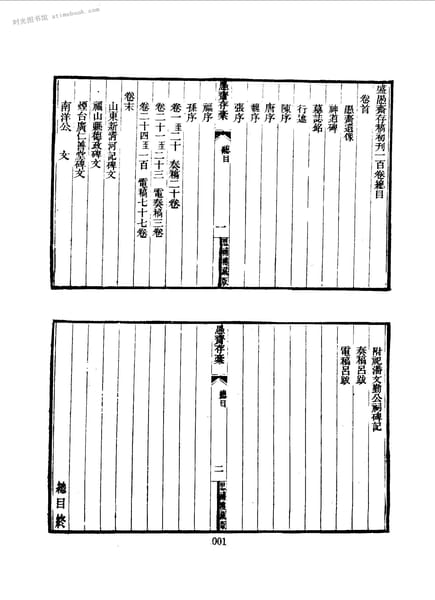 时光图书馆 - xtimebook.com
盛愚齋存稿初刊一百卷總目
卷首
愚齋遺像
神道碑
墓誌銘
行述
陳序
唐序
魏序
張序
愚齋存稾
總目
一
思補樓藏版
序
孫序
卷一至二十 奏稿二十卷
卷二十一至二十三 電奏稿三卷
卷二十四至一百 電稿七十七卷
卷末
山東新清河記碑文
福山縣德政碑文
煙台廣仁善堂碑文
南洋公 文
附祀潘文勤公祠碑記
奏稿呂跋
電稿呂跋
愚齋存稾
總目
二
思補樓藏版
總目終
001